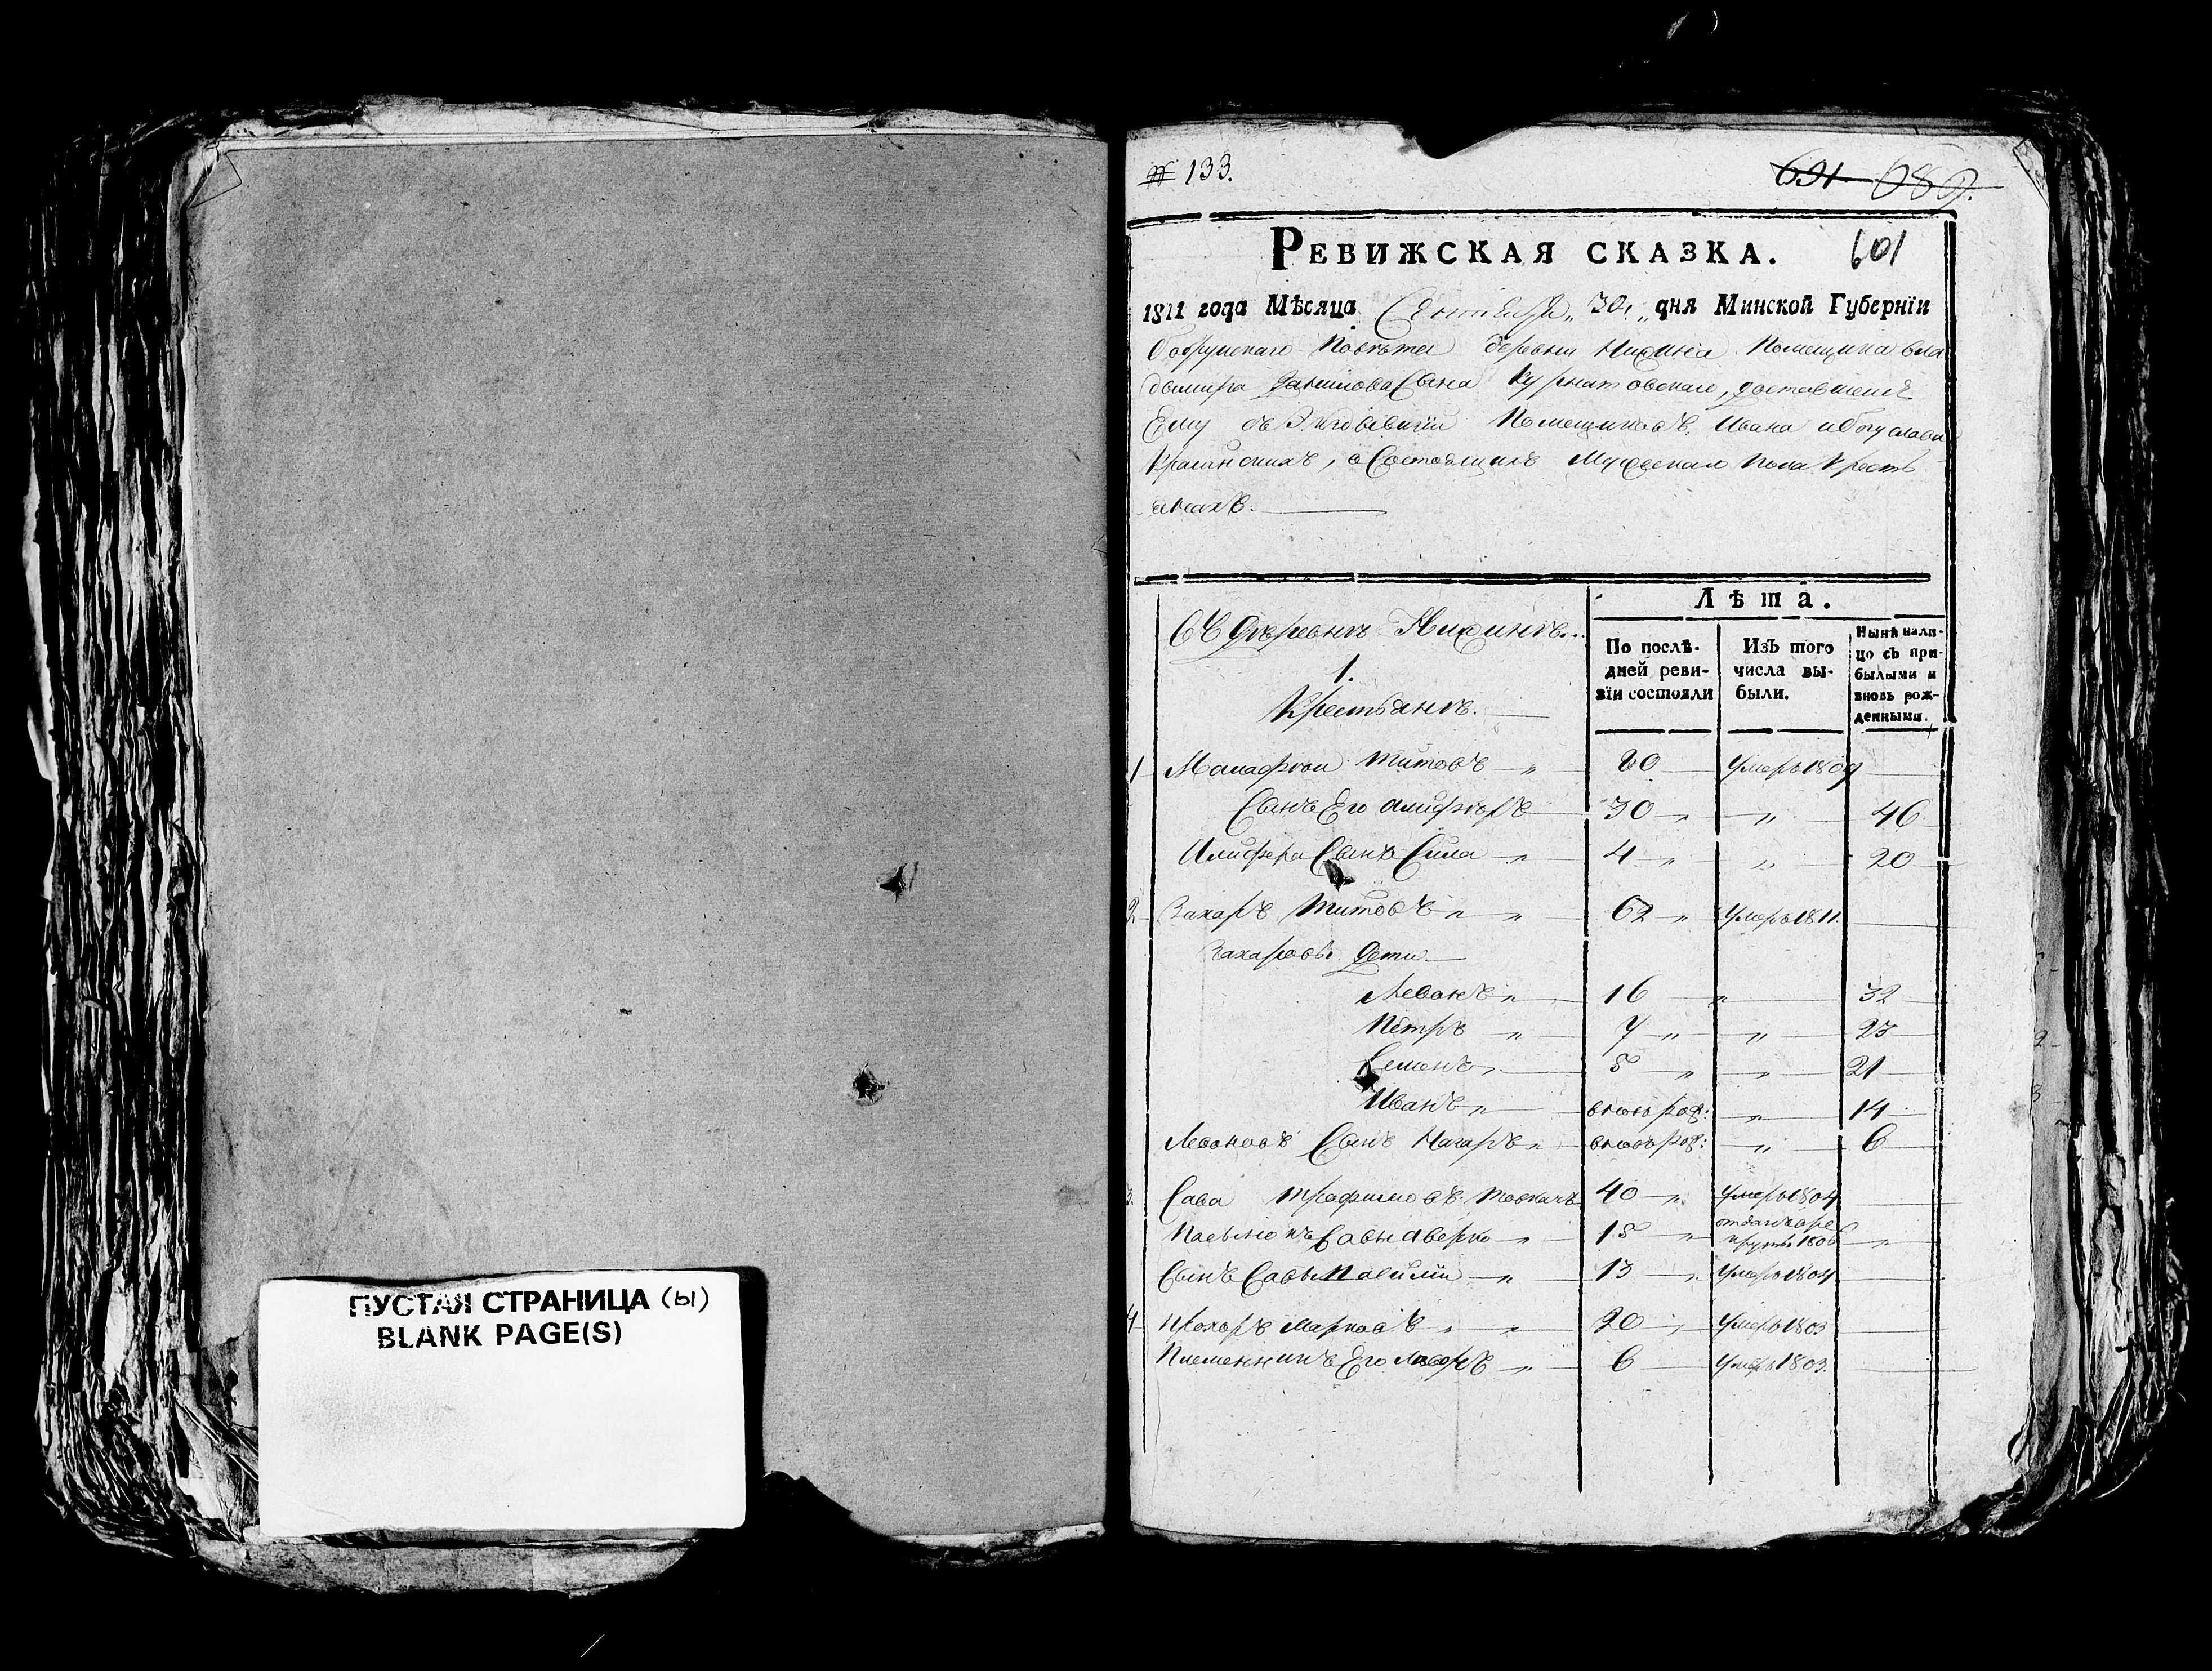 ПУСТАЯ СТРАНИЦА (ы)
BLANK PAGE(S)
№ 133.
691. 689.
РЕВИЖСКАЯ СКАЗКА.
601
1811 года Мѣсяца Сентября „30„ дня Минской Губерніи
Бобруйскаго Повѣта деревни Помещика Вла
дымира Данилова Сына Курнатовскаго, доставшейся
Ему Помещиковъ Ивана и Богуслава
о Состоящихъ Мужескаго пола Кресть
янахъ.
Лѣта.
Въ Деревнѣ
1.
Крестьянъ.
По послѣ-
дней реви-
зіи состояли
Изъ того
числа вы-
были.
Нынѣ нали-
цо съ при-
былыми и
вновь рож-
денными.
1 Малафѣи Титовъ „ 80 Умеръ 1809
Сынъ Его Алифѣръ 30 „ „ 46
Алифера Сынъ Сила „ 4 „ „ 20
2 Захаръ Титовъ „ „ 62 „ Умеръ 1811.
Захаровы Дети
Левонъ „ 16 „ 32
Петръ „ 7 „ „ 23
Семенъ „ 5 „ „ 21
Иванъ „ вновь рож: „ 14
Левоновъ Сынъ Назаръ „ вновь рож: „ 6
3. Сава Трофимовъ Товкачъ 40 „ Умеръ 1804
Пасынокъ Савы Аверко „ 15 „ отданъ в ре
круты 1806 „
Сынъ Савы 13 „ Умеръ 1804
4 Прохоръ Марковъ „ „ 20 „ Умеръ 1803
Племенникъ Его „ 6 Умеръ 1803.